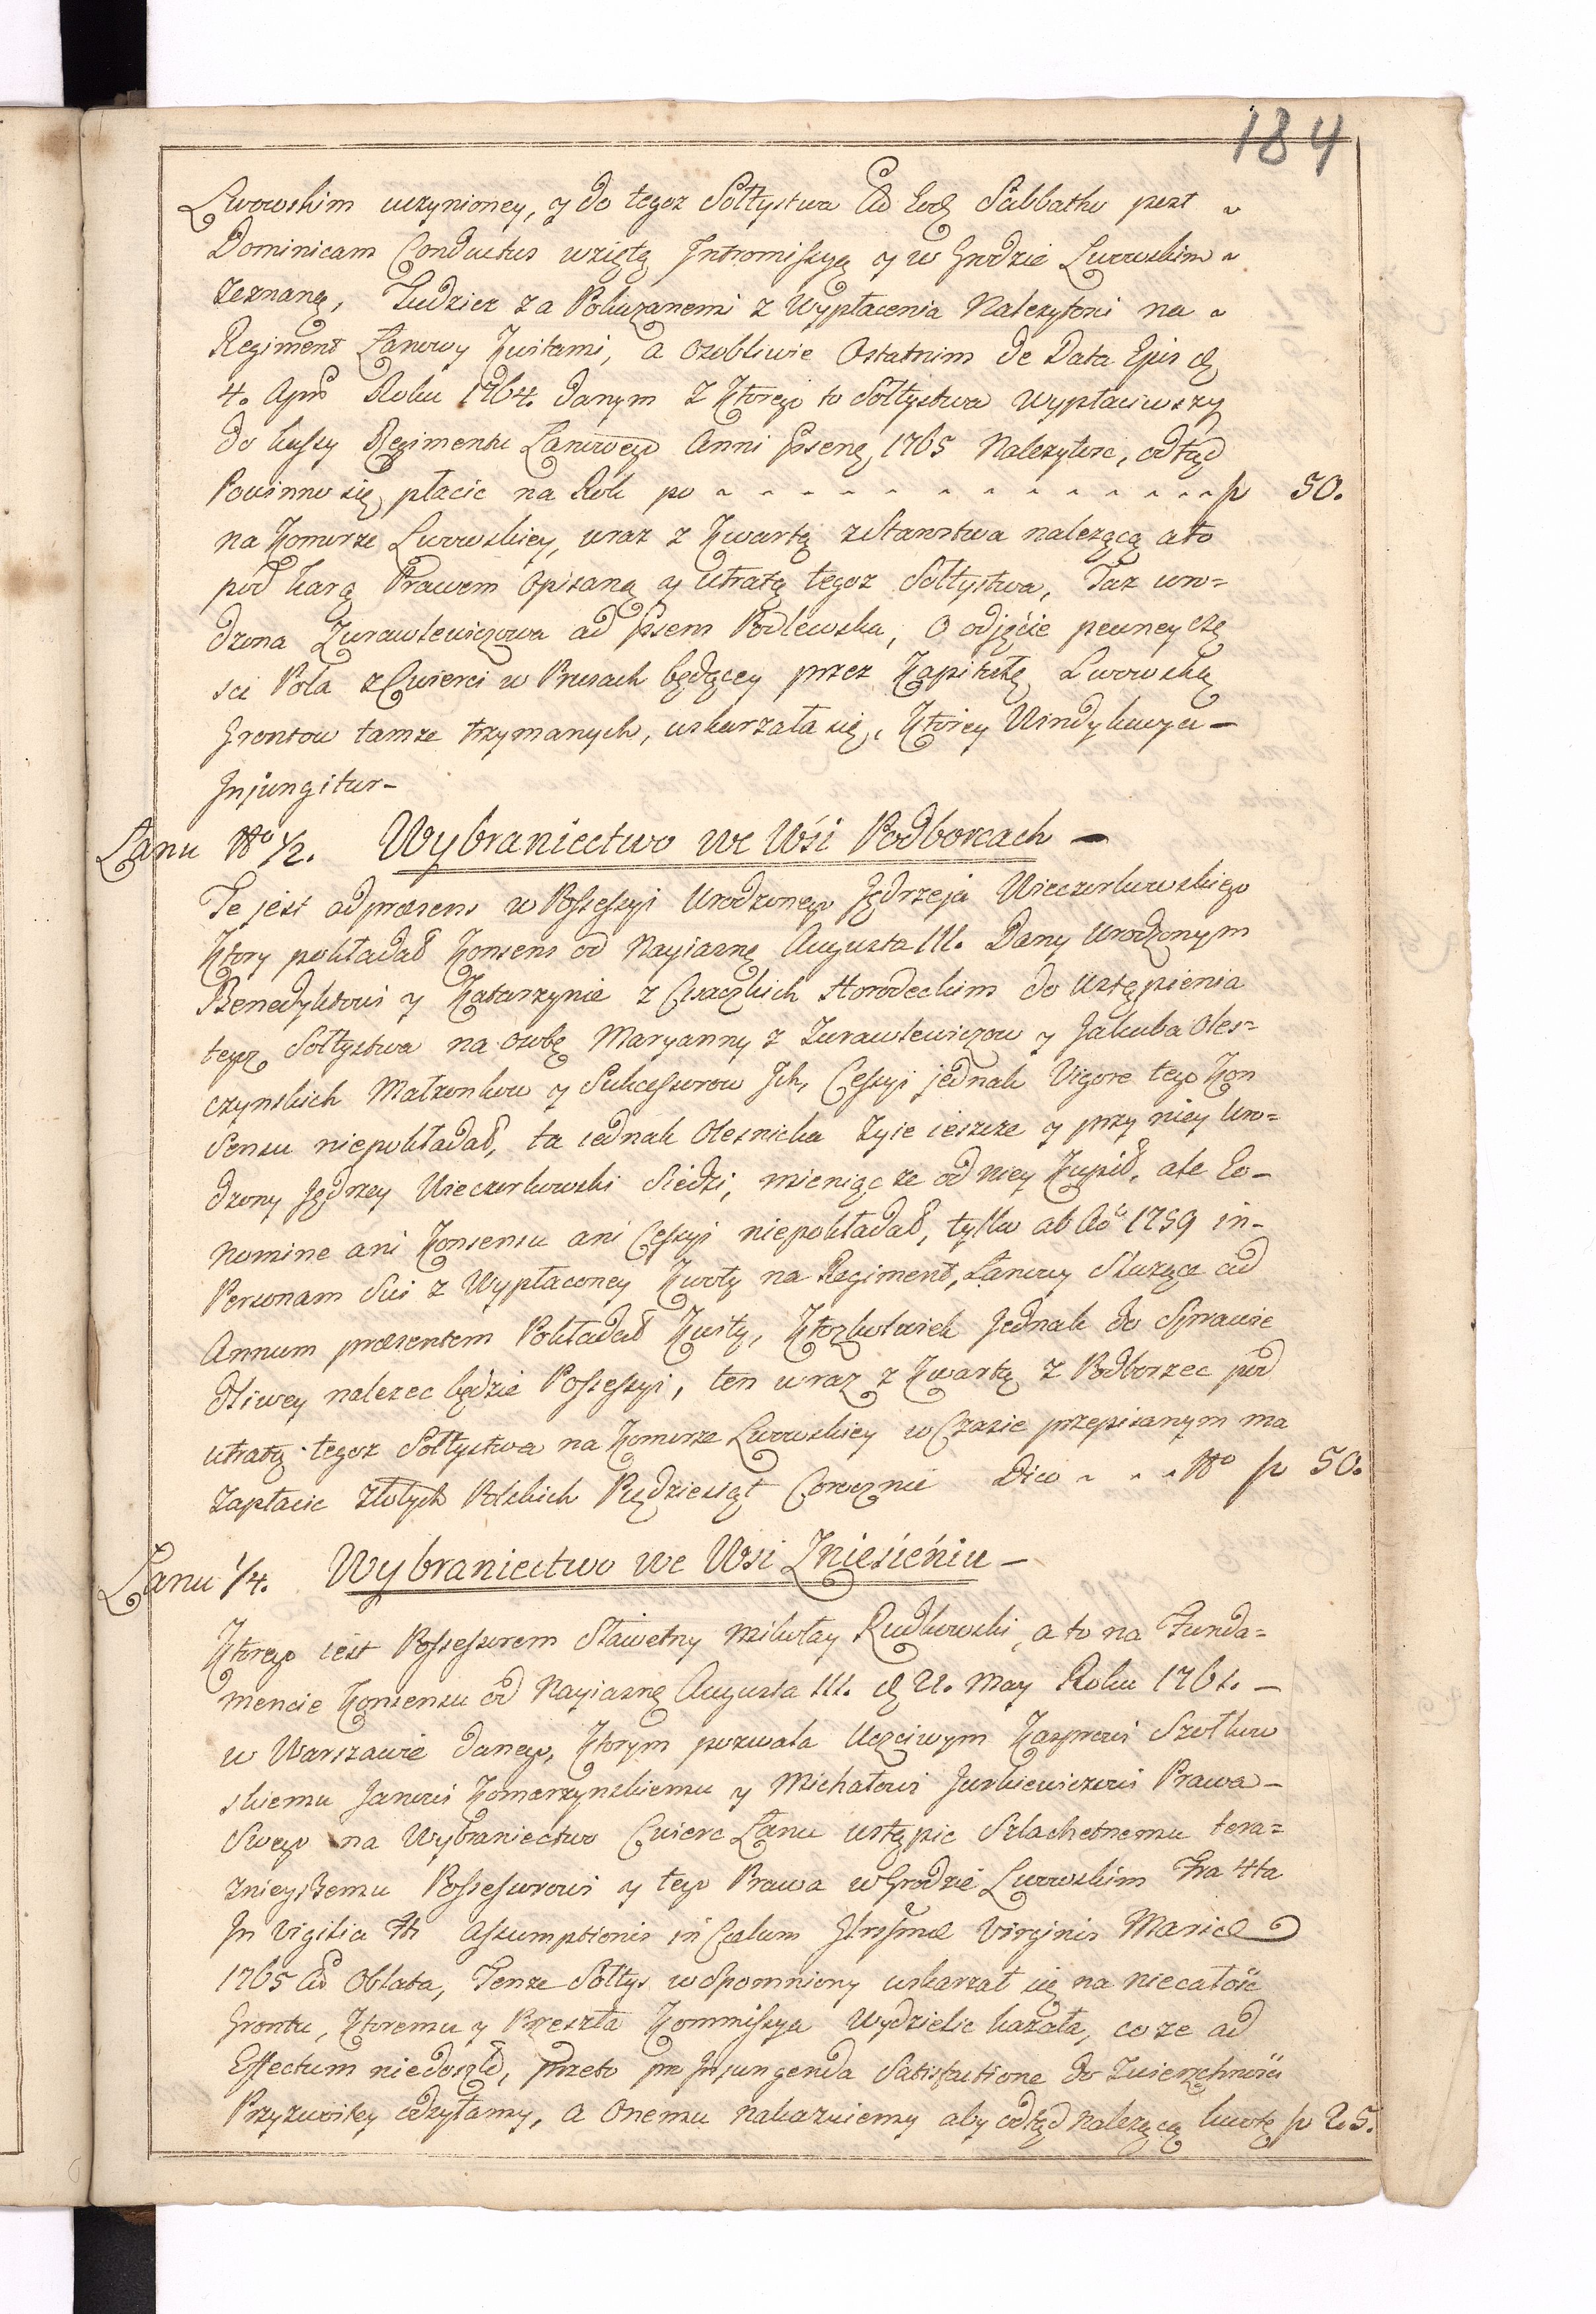 184
Lwowskim uczynioney, y do tegoz Sołtystwa Sabbatho post
Dominicam Conductus wziętą Intromissyą y w Grodzie Lwowskim
zeznaną, Tudziez za Pokazanemi z Wypłacenia Nalezytości na
Regiment Łanowy Kwitami, a osobliwie Ostatnim de Data
4. Apr. Roku 1764. danym z Ktorego to Sołtystwa wypłaciwszy
do kassy Regimentu Łanowego Anni 1765 Nalezytosc, odtąd
Powinno się płacic na Rok po - - - - - - - - - - - - f 50.
na Komorze Lwowskiey, wraz z Kwartą z Starostwa nalezącą a to
pod karą Prawem opisaną y utratą tegoz Sołtystwa, Taz uro=
dzona Zurawlewiczowa ad Podlewska, O odjęcie pewney czę
sci Pola z Cwierci w Prusach będącey przez Kapitułę Lwowską
Grontow tamze trzymanych, uskarzała się, Ktorey Windykacya -
Injungitur -
Łanu No 1/2. Wybraniectwo we Wśi Podborcach -
Te jest ad præsens w Possessyi Urodzonego Jędrzeja Wieczorkowskiego
Ktory pokładał Konsens od Nayiasnę Augusta III. Dany Urodzonym
Benedyktowi y Katarzynie z Horodeckim do Ustąpienia
tegoz Sołtystwa na osobę Maryanny z Zurawlewiczow y Jakuba Oles=
czynskich Małzonkow y Sukcessorow Ich, Cessyi jednak Vigore tego Kon
Sensu niepokładał, ta iednak Olesnicka zyie ieszcze y przy niey Uro=
dzony Jędrzey Wieczorkowski Siedzi, mieniąc ze od niey Kupił, ale Eo -
Nomine ani Konsensu ani Cessyi niepokładał, tylko ab Aõ 1759 in -
Personam Sui z Wypłaconey Kwoty na Regiment Łanowy Sluzące ad
Annum præsentem Pokładał Kwity, Ktozkolwiek Jednak do Sprawie
dliwey nalezec będzie Possessyi, ten wraz z Kwartą z Podborzec pod
utratą tegoz Sołtystwa na Komorze Lwowskiey w Czasie przepisanym ma
zapłacic złotych Polskich Pędziesiąt Corocznie Dico - - - No f 50.
Łanu 1/4. Wybraniectwo we Wsi Zniesieńiu -
Ktorego iest Possessorem Sławetny Mikołay Rudkowski, a to na Funda=
mencie Konsensu od Nayiasnę Augusta III. May Roku 1761. -
w Warszawie danego, Ktorym pozwala Uczciwym Kasprowi Szołkow
skiemu Janowi Komarzynskiemu y Michałowi Jurkiewiczowi Prawa -
Swego na Wybraniectwo Cwierc Łanu ustąpic Szlachetnemu tera=
znieyszemu Possessorowi y tego Prawa w Grodzie Lwowskim Fra 4ta
In Vigilia Assumptionis in Cœlum Virginis Mariæ
1765 Ao Oblata, Tenze Sołtys wspomniony uskarzał się na niecałość
Grontu, Ktoremu y Przeszła Kommissya Wydzielic kazała, co ze ad
Effectum niedoszło, Przeto pro Injungenda Satisfactione do Zwierzchnosci
Przyzwoitey odsyłamy, a Onemu nakazuiemy aby odtąd nalezącą kwotę f 25.